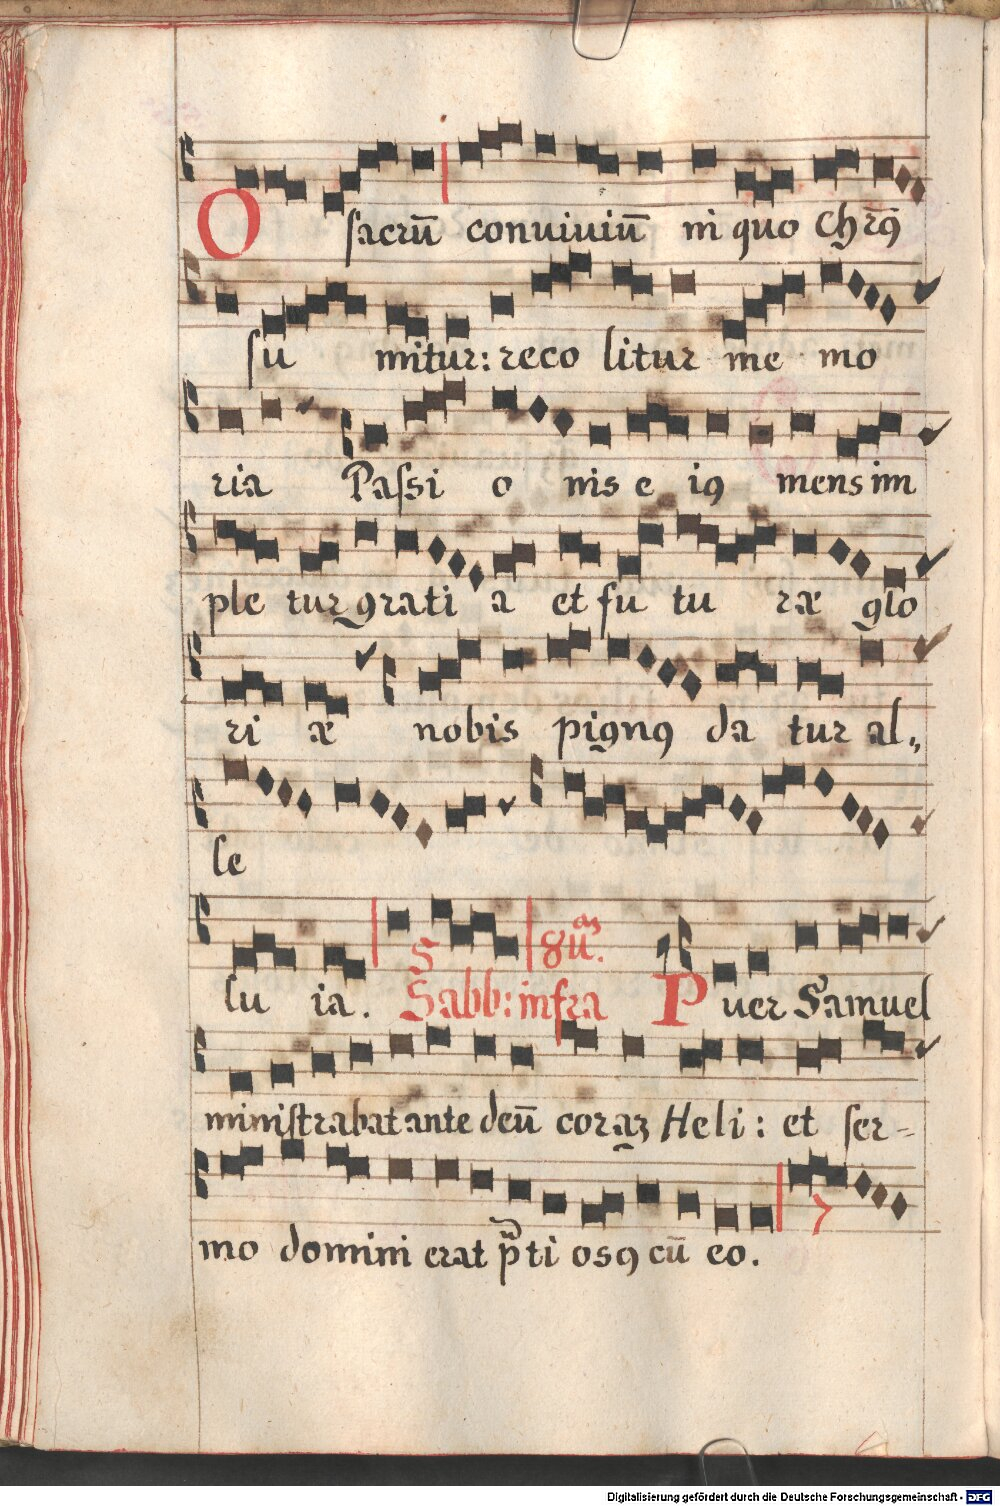 O sacrū conuiuiū in quo Chrꝯ
su mitur: reco litur me mo
ria Passi o nis e iꝯ mens im
ple tur grati a et fu tu ræ glo
ri æ nobis pignꝯ da tur al,
le
lu ia. S Sabb: infra 8ū. Puer Samuel
ministrabat ante deū coraꝫ Heli: et ser-
mo domini erat p̄ti osꝯ cū eo. 7
Digitalisierung gefördert durch die Deutsche Forschungsgemeinschaft - DFG